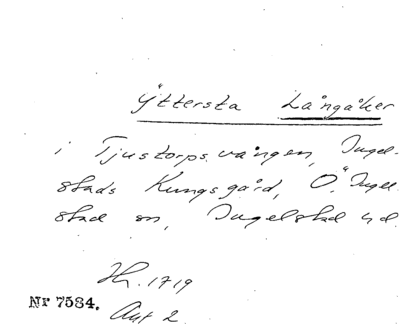 Yttersta Långåker
i Tjustorps vången, Ingel-
stads Kungsgård, Ö. Ingel-
stad sn, Ingelstad hd.
Nr 7584.
1719
Akt 2